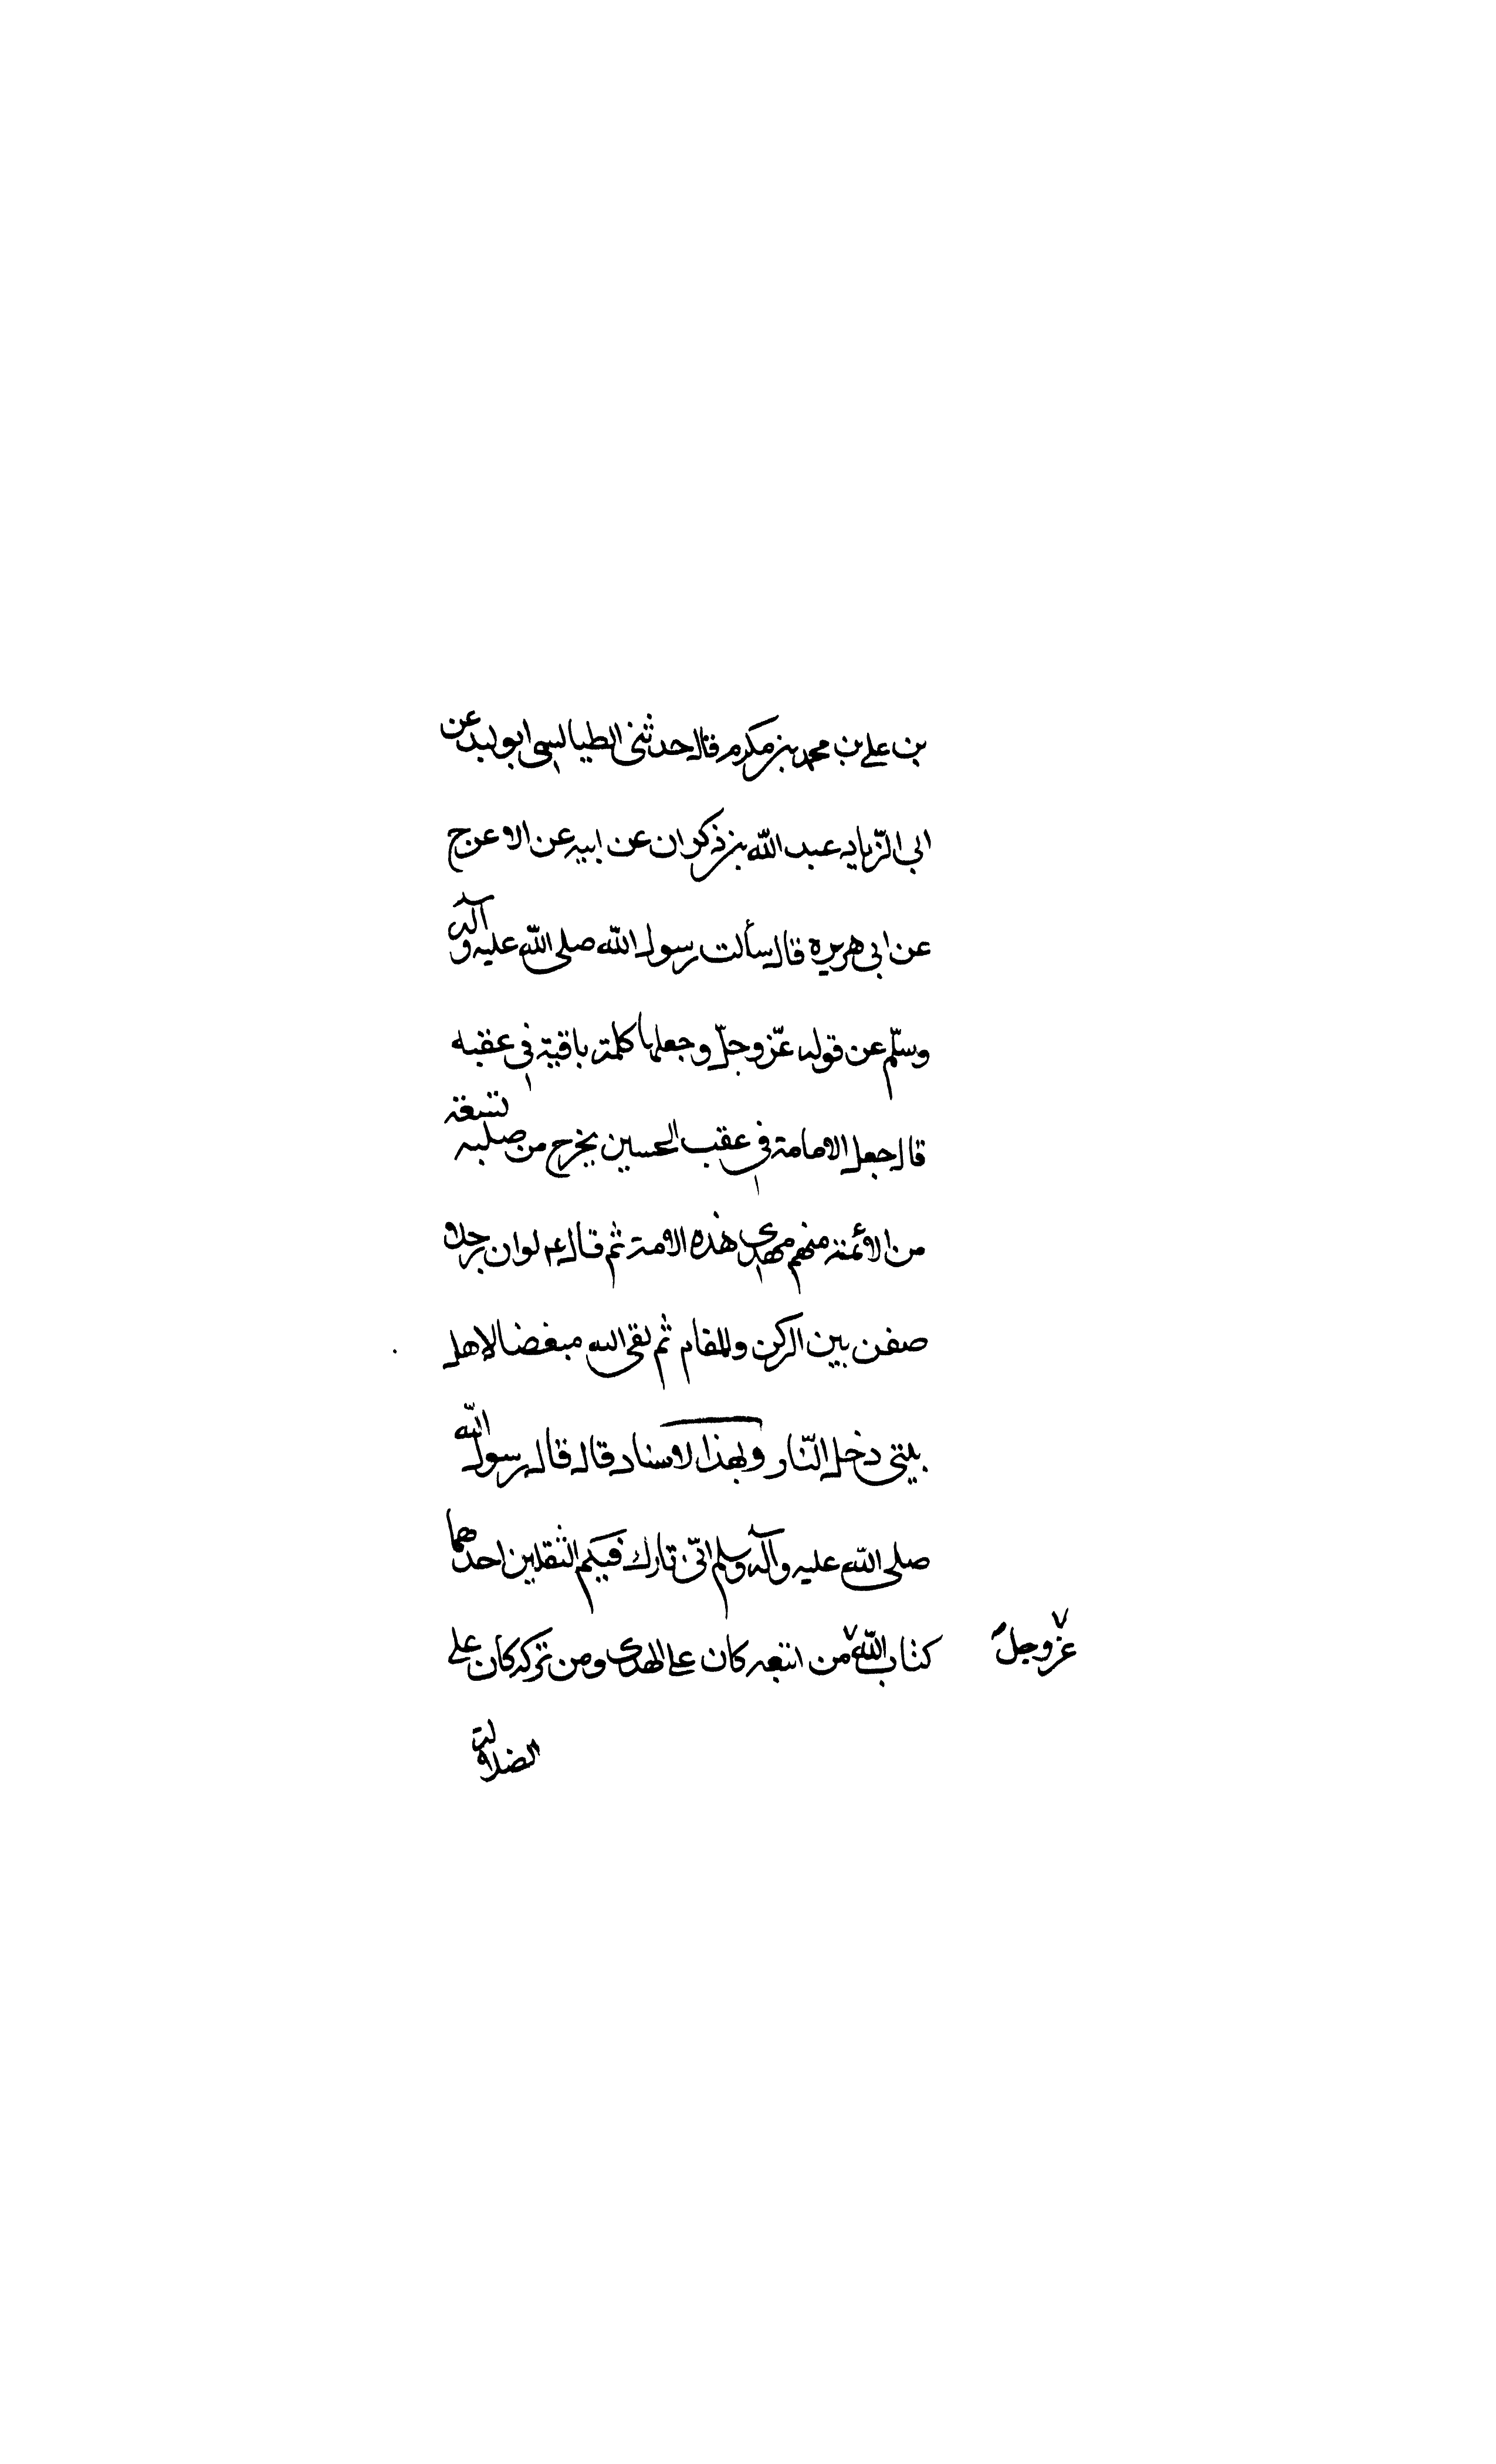 بن علي بن محمد بن مكرم قال حدثني الطيالسي ابو ليد عن
ابي الزياد عبد الله بن ذكوان عن ابيه عن الاعرج
عن ابي هريره قال سألت رسول الله صلى الله عليه وآله
وسلّم عن قوله عزّ وجلّ وجعلها كلمة باقية في عقبه
قال جعل الامامة في عقب الحسين يخرج من صلبه تسعة
من الائمة منهم مهدي هذه الامة ثم قال ع لو ان رجلا
صفن بين الركن والمقام ثم لقى الله مبغضا لاهل
بيتي دخل النّار وبهذا لاسناد قال قال رسول الله
صلى الله عليه وآله وسلم انّي تارك فيكم الثقلين احدهما
كتاب الله عزوجل من اتبعه كان على الهدى ومن تركه كان على
الضلالة